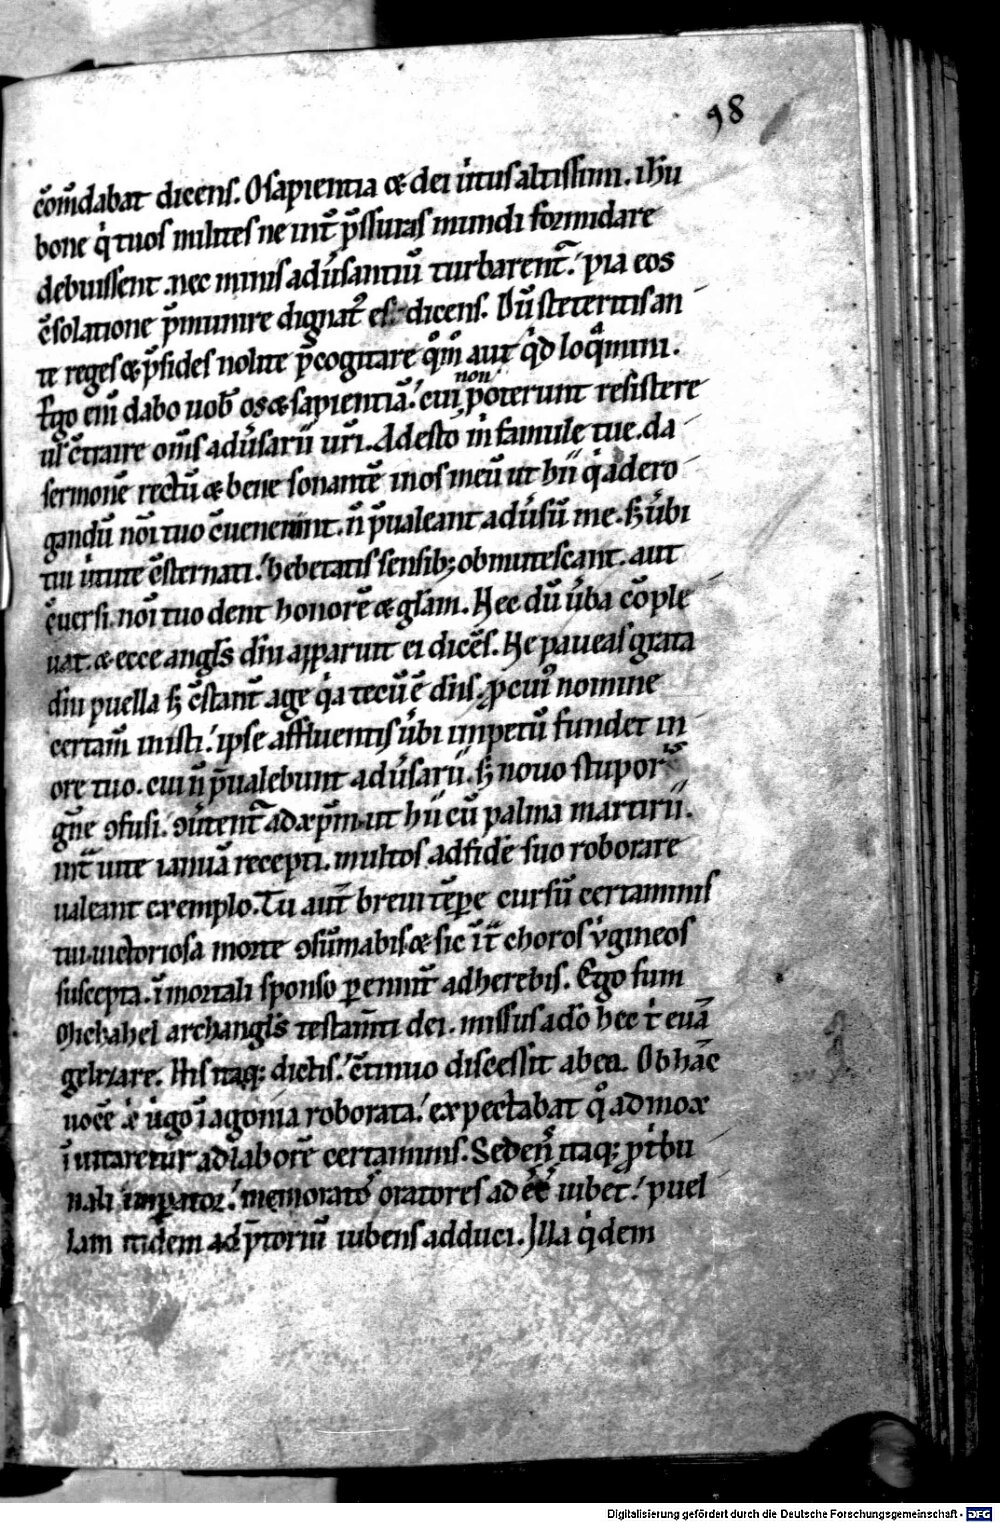 98
c̄om̄dabat dicens. O sapientia & dei uirtus altissimi. ihu
bone qi tuos milites ne int̄ p̄ssuras mundi formidare
debuissent. nec minis adu̓santiū turbarent᷑. pia eos
c̄solatione p̄munire dignat᷑ es dicens. Dū steteritis an
te reges & p̄sides nolite p̄cogitare qͦm̄ aut qͥd loqͣmini.
Ego eni̅ dabo uob̄ os & sapientiā. cui non poterunt resistere
ul̄ c̄traire om̄s adu̓sarii uri̅. Adesto m̊ famule tue. da
sermonē rectū & bene sonantē in os meū ut hii qͥ ad ero
gandū noi̅ tuo c̄uenerint. n̄ p̄ualeant adu̓sū me. s; u̓bi
tui uͥtute c̄sternati. hebetatis sensib; obmutescant. aut
c̄uersi. noi̅ tuo dent honorē & gl̄am. Hec dū u̓ba cōple
uat. & ecce angl̄s dn̄i apparuit ei dicēs. Ne paueas grata
dn̄i puella s; c̄stant̄ age qͥa tecū ē dn̄s. p cuiꝰ nomine
certam̄ inisti. ipse affluentis u̓bi impetū fundet in
ore tuo. cui n̄ p̄ualebunt adu̓sarii. s; nouo stupor
is
gn̄e ꝯfusi. ꝯu̓tent᷑ ad xp̄m. ut hii cū palma martirii.
int̄ uite ianuā recepti. multos ad fidē suo roborare
ualeant exemplo. Tu aut̄ breui tēpe cursū certaminis
tui. uictoriosa morte ꝯsūmabis & sic īt̄ choros uͥgineos
suscepta. īmortali sponso perennit̄ adherebis. Ego sum
Michahel archangl̄s testam̄ti dei. missus a dō hec tͥ euā
gelizare. His itaq; dictis. c̄tinuo discessit ab ea. Ob hāc
uocē & uͥgo ī agonia roborata. expectabat qͦ ad mox
īuitaretur ad laborē certaminis. Sedens itaq; p tͥbu
nali imperator. memoratos oratores adēē iubet. puel
lam itidem ad p̄toriū iubens adduci. Illa qͥdem
Digitalisierung gefördert durch die Deutsche Forschungsgemeinschaft - DFG